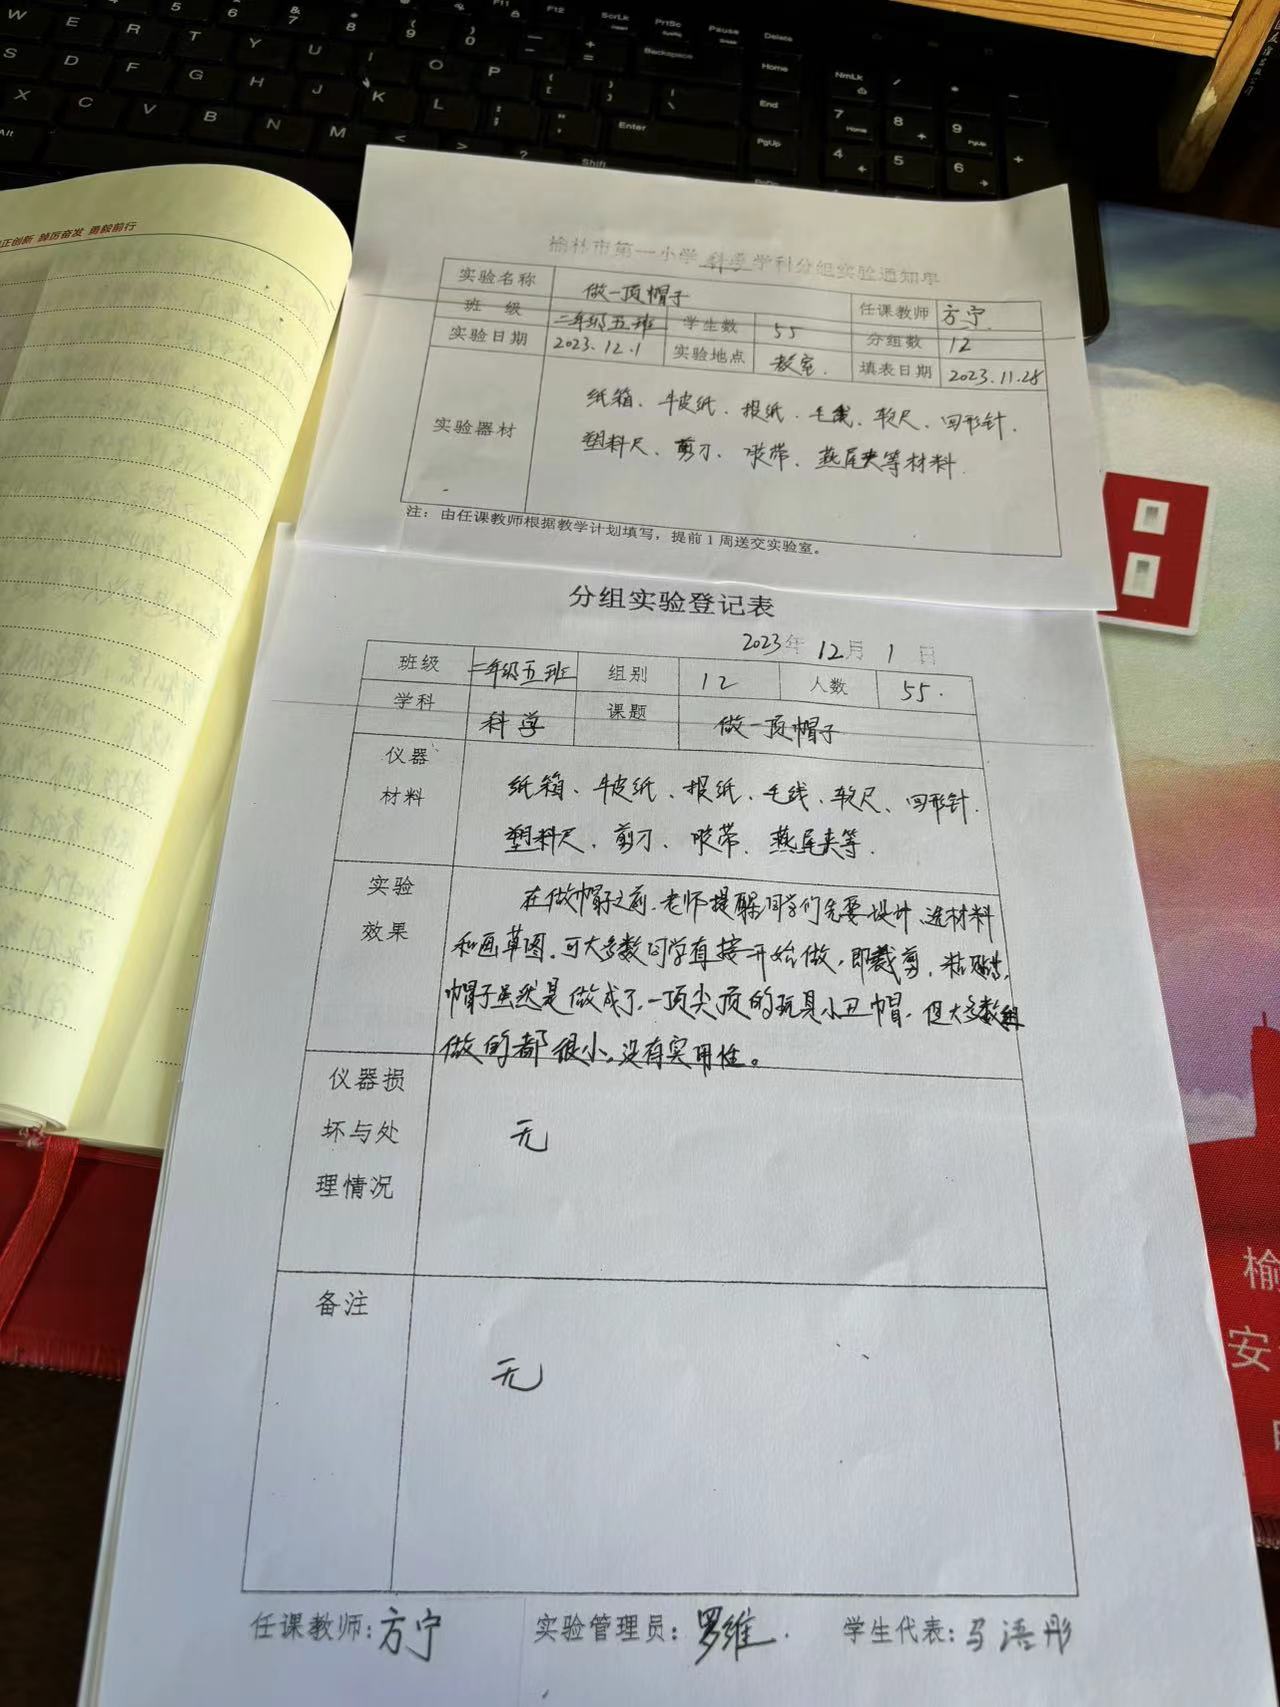 正创新 踔厉奋发 勇毅前行
榆林市第一小学 科学 学科分组实验通知单
实验名称 做一顶帽子 任课教师 方宁
班 级 二年级五班 学生数 55 分组数 12
实验日期 2023.12.1 实验地点 教室. 填表日期 2023.11.28
实验器材
纸箱、牛皮纸、报纸、毛线、软尺、回形针.
塑料尺、剪刀、胶带、燕尾夹等材料
注:由任课教师根据教学计划填写,提前1周送交实验室。
分组实验登记表
2023年 12月 1 日
班级 二年级五班 组别 12 人数 55.
学科 科学 课题 做一顶帽子
仪器
材料
纸箱、牛皮纸、报纸、毛线、软尺、回形针.
塑料尺、剪刀、胶带、燕尾夹等.
实验
效果
在做帽子之前.老师提醒同学们先要设计、选材料
和画草图.可大多数同学直接开始做,即裁剪、粘贴,
帽子虽然是做成了.一顶尖顶的玩具小丑帽.但大多数组
做的都很小。没有实用性。
仪器损
坏与处
理情况
无
备注
无
任课教师:方宁 实验管理员:罗维. 学生代表:马语彤
榆
安